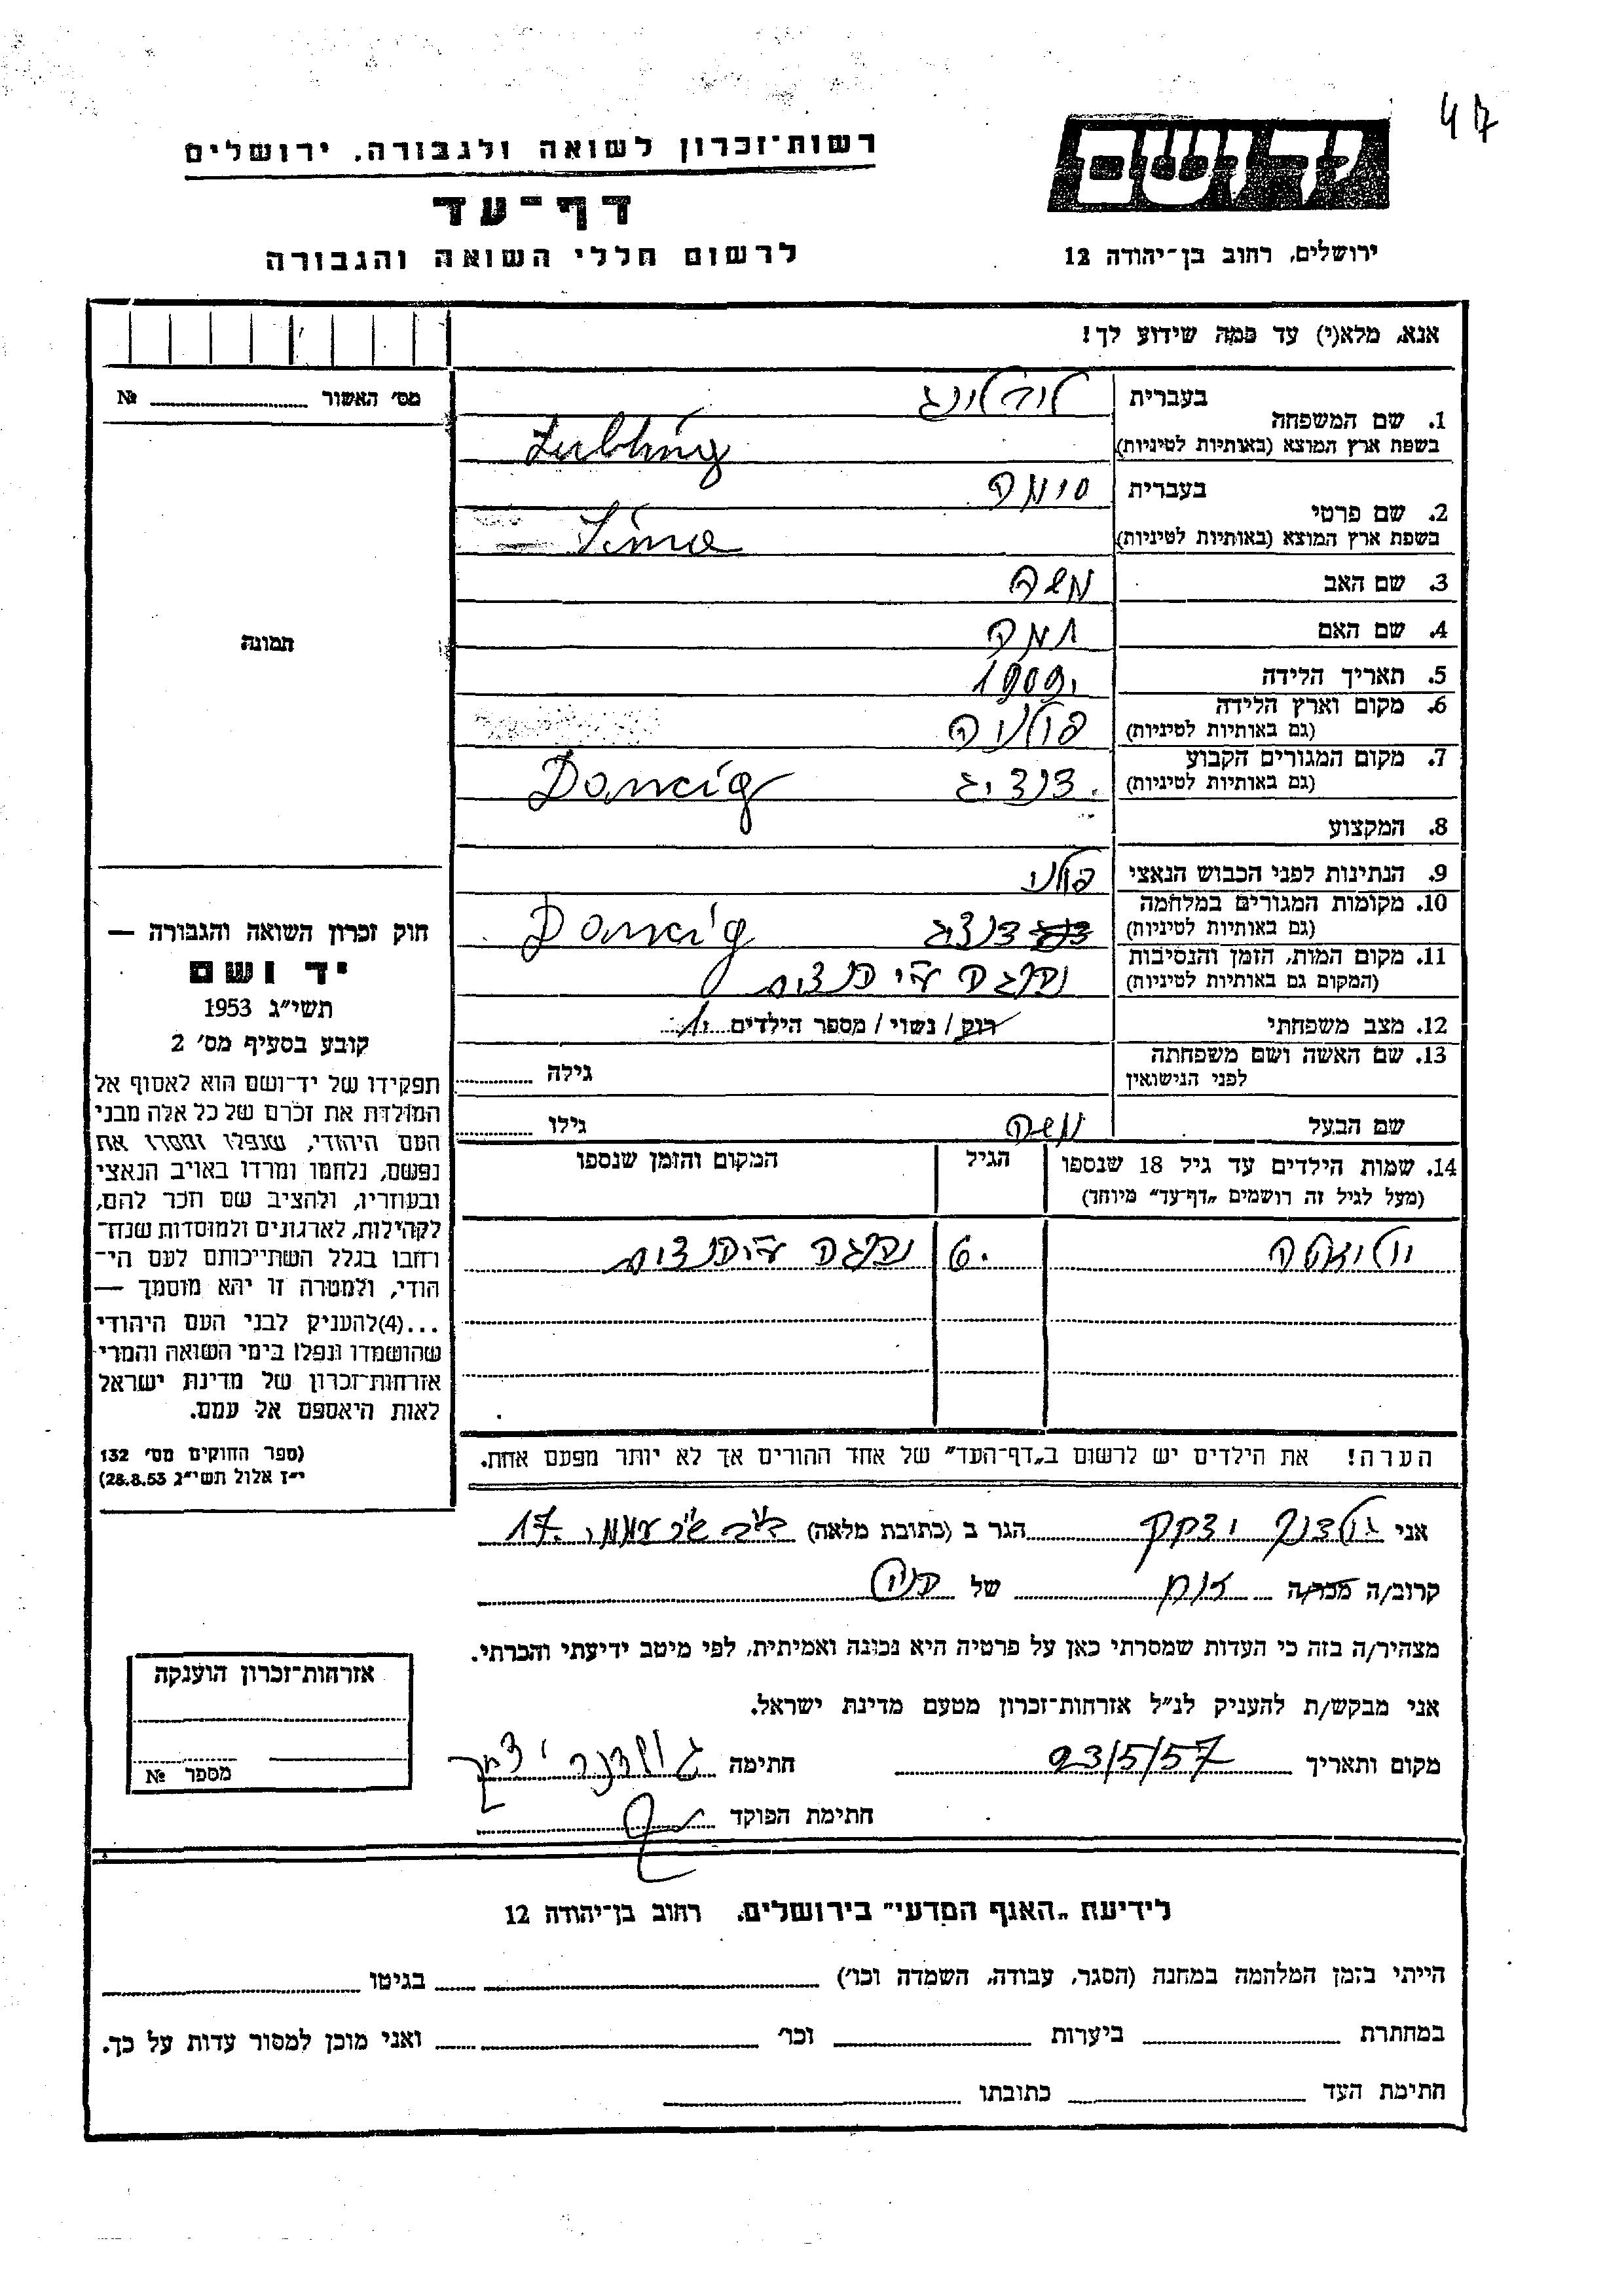 47
רשות־זכרון לשואה ולגבורה, ירושלים
יד ושם
דף־עד
לרשום חללי השואה והגבורה
ירושלים, רחוב בן־יהודה 12
אנא, מלא(י) עד כמה שידוע לך!
מס׳ האשור № 
1. שם המשפחה
בעברית
בשפת ארץ המוצא (באותיות לטיניות)
2. שם פרטי
בעברית סימה
בשפת ארץ המוצא (באותיות לטיניות) Sima
3. שם האב משה
4. שם האם
5. תאריך הלידה 1909
6. מקום וארץ הלידה
(גם באותיות לטיניות) פולניה
7. מקום המגורים הקבוע
(גם באותיות לטיניות) דנציג Dancig
8. המקצוע
9. הנתינות לפני הכבוש הנאצי פולני
10. מקומות המגורים במלחמה
(גם באותיות לטיניות) דנציג Dancig
11. מקום המות, הזמן והנסיבות
(המקום גם באותיות לטיניות) נהרגה ע״י הנצים
12. מצב משפחתי רווק / נשוי / מספר הילדים 1
13. שם האשה ושם משפחתה
לפני הנישואין
גילה
שם הבעל משה גילו
14. שמות הילדים עד גיל 18 שנספו
(מעל לגיל זה רושמים „דף־עד״ מיוחד)
הגיל
המקום והזמן שנספו
6 נהרגה ע״י הנצים
הערה! את הילדים יש לרשום ב„דף־העד״ של אחד ההורים אך לא יותר מפעם אחת.
תמונה
חוק זכרון השואה והגבורה —
יד ושם
תשי״ג 1953
קובע בסעיף מס׳ 2
תפקידו של יד־ושם הוא לאסוף אל
המולדת את זכרם של כל אלה מבני
העם היהודי, שנפלו ומסרו את
נפשם, נלחמו ומרדו באויב הנאצי
ובעוזריו, ולהציב שם וזכר להם,
לקהילות, לארגונים ולמוסדות שנח־
רבו בגלל השתייכותם לעם הי־
הודי, ולמטרה זו יהא מוסמך —
...(4)להעניק לבני העם היהודי
שהושמדו ונפלו בימי השואה והמרי
אזרחות־זכרון של מדינת ישראל
לאות היאספם אל עמם.
(ספר החוקים מס׳ 132
י״ז אלול תשי״ג 28.8.53)
אני יצחק הגר ב (כתובת מלאה) 17
קרוב/ה מכר/ה של
מצהיר/ה בזה כי העדות שמסרתי כאן על פרטיה היא נכונה ואמיתית, לפי מיטב ידיעתי והכרתי.
אני מבקש/ת להעניק לנ״ל אזרחות־זכרון מטעם מדינת ישראל.
מקום ותאריך 23/5/57 חתימה
חתימת הפוקד
אזרחות־זכרון הוענקה
מספר №
לידיעת „האגף המדעי״ בירושלים, רחוב בן־יהודה 12
הייתי בזמן המלחמה במחנה (הסגר, עבודה, השמדה וכו׳) בגיטו
במחתרת ביערות וכו׳ ואני מוכן למסור עדות על כך.
חתימת העד כתובתו